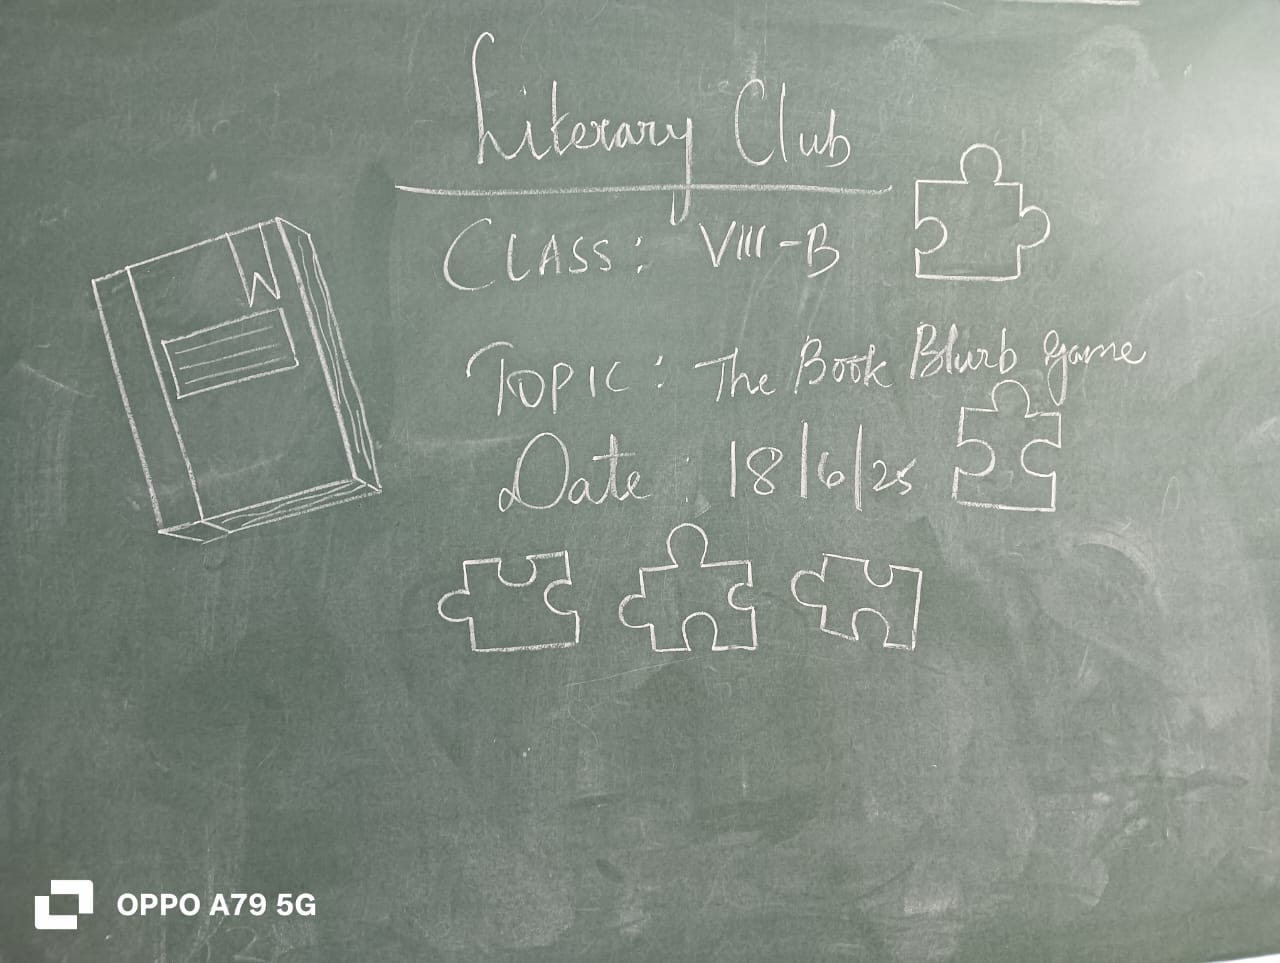 Literary Club
CLASS: VIII-B
TOPIC: The Book Blurb game
Date: 18/6/25
OPPO A79 5G